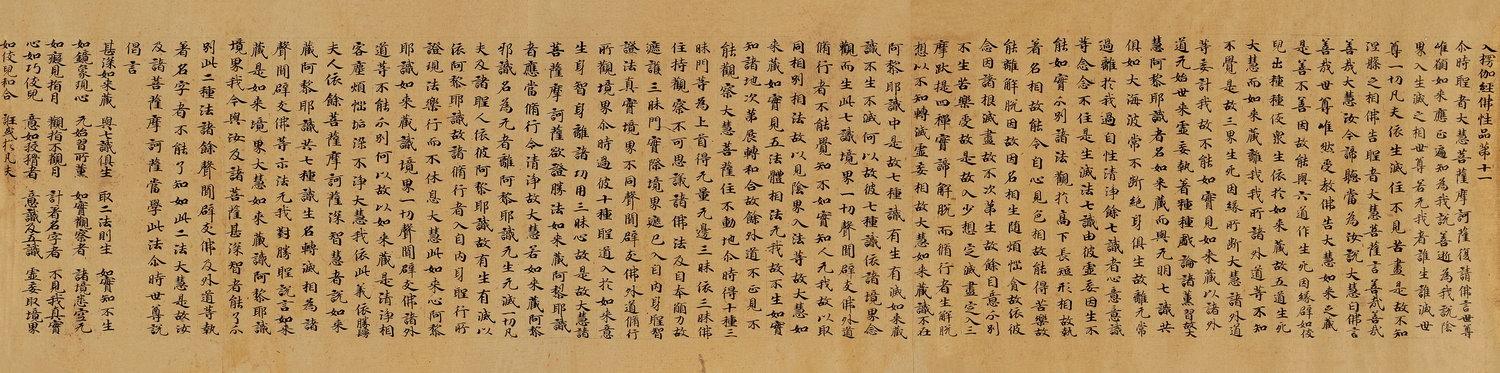 入楞伽經佛性品第十一
尒時聖者大慧菩薩摩訶薩復請佛言世尊
唯願如來應正遍知為我說善逝為我說陰
界入生滅之相世尊若无我者誰生誰滅世
尊一切凡夫依生滅住不見苦盡是故不知
涅槃之相佛告聖者大慧菩薩言善哉善哉
善哉大慧汝今諦聽當為汝說大慧白佛言
善哉世尊唯然受教佛告大慧如來之藏
是善不善因故能與六道作生死因緣辟如伎
兒出種種伎衆生依於如來藏故五道生死
大慧而如來藏離我我所諸外道等不知
不覺是故三界生死因緣不斷大慧諸外道
等妄計我故不能如實見如來藏以諸外
道无始世來虛妄執著種種戲論諸薰習故大
慧阿黎耶識者名如來藏而與无明七識共
俱如大海波常不斷絕身俱生故離无常
過離於我過自性清淨餘七識者心意意識
等念念不住是生滅法七識由彼虛妄因生不
能如實分別諸法觀於高下長短形相故執
著名相故能令自心見色相故能得苦樂故
能離解脫因故因名相生隨煩惱貪故依彼
念因諸根滅盡故不次第生故餘自意分別
不生苦樂受故是故入少想定滅盡定入三
摩跋提四禪實諦解脫而修行者生解脫
想以不知轉滅虛妄相故大慧如來藏識不在
阿黎耶識中是故七種識有生有滅如來藏
識不生不滅何以故彼七種識依諸境界念
觀而生此七識境界一切聲聞辟支佛外道
修行者不能覺知不如實知人无我故以取
同相別相法故以見陰界入法等故大慧如
來藏如實見五法體相法无我故不生如實
知諸地次第展轉和合故餘外道不正見不
能觀察大慧菩薩住不動地尒時得十種三
昧門等為上首得无量无邊三昧依三昧佛
住持觀察不可思議諸佛法及自本願力故
遮護三昧門實際境界遮已入自內身聖智
證法真實境界不同聲聞辟支佛外道修行
所觀境界尒時過彼十種聖道入於如來意
生身智身離諸功用三昧心故是故大慧諸
菩薩摩訶薩欲證勝法如來藏阿梨耶識
者應當修行令清淨故大慧若如來藏阿黎
耶識名為无者離阿黎耶識无生无滅一切凡
夫及諸聖人依彼阿黎耶識故有生有滅以
依阿黎耶識故諸修行者入自內身聖行所
證現法樂行而不休息大慧此如來心阿黎
耶識如來藏識境界一切聲聞辟支佛諸外
道等不能分別何以故以如來藏是清淨相
客塵煩惱垢染不淨大慧我依此義依勝鬘
夫人依餘菩薩摩訶薩深智慧者說如來
藏阿黎耶識共七種識生名轉滅相為諸
聲聞辟支佛等示法无我對勝鬘說言如來
藏是如來境界大慧如來藏識阿黎耶識
境界我今與汝及諸菩薩甚深智者能了分
別此二種法諸餘聲聞辟支佛及外道等執
著名字者不能了知如此二法大慧是故汝
及諸菩薩摩訶薩當學此法尒時世尊說
偈言
甚深如來藏 與七識俱生 取二法則生 如實知不生
如鏡像現心 无始習所薰 如實觀察者 諸境悉空无
如癡見指月 觀指不觀月 計著名字者 不見我真實
心如巧伎兒 意如狡猾者 意識及五識 虛妄取境界
如伎兒和合 誑或於凡夫